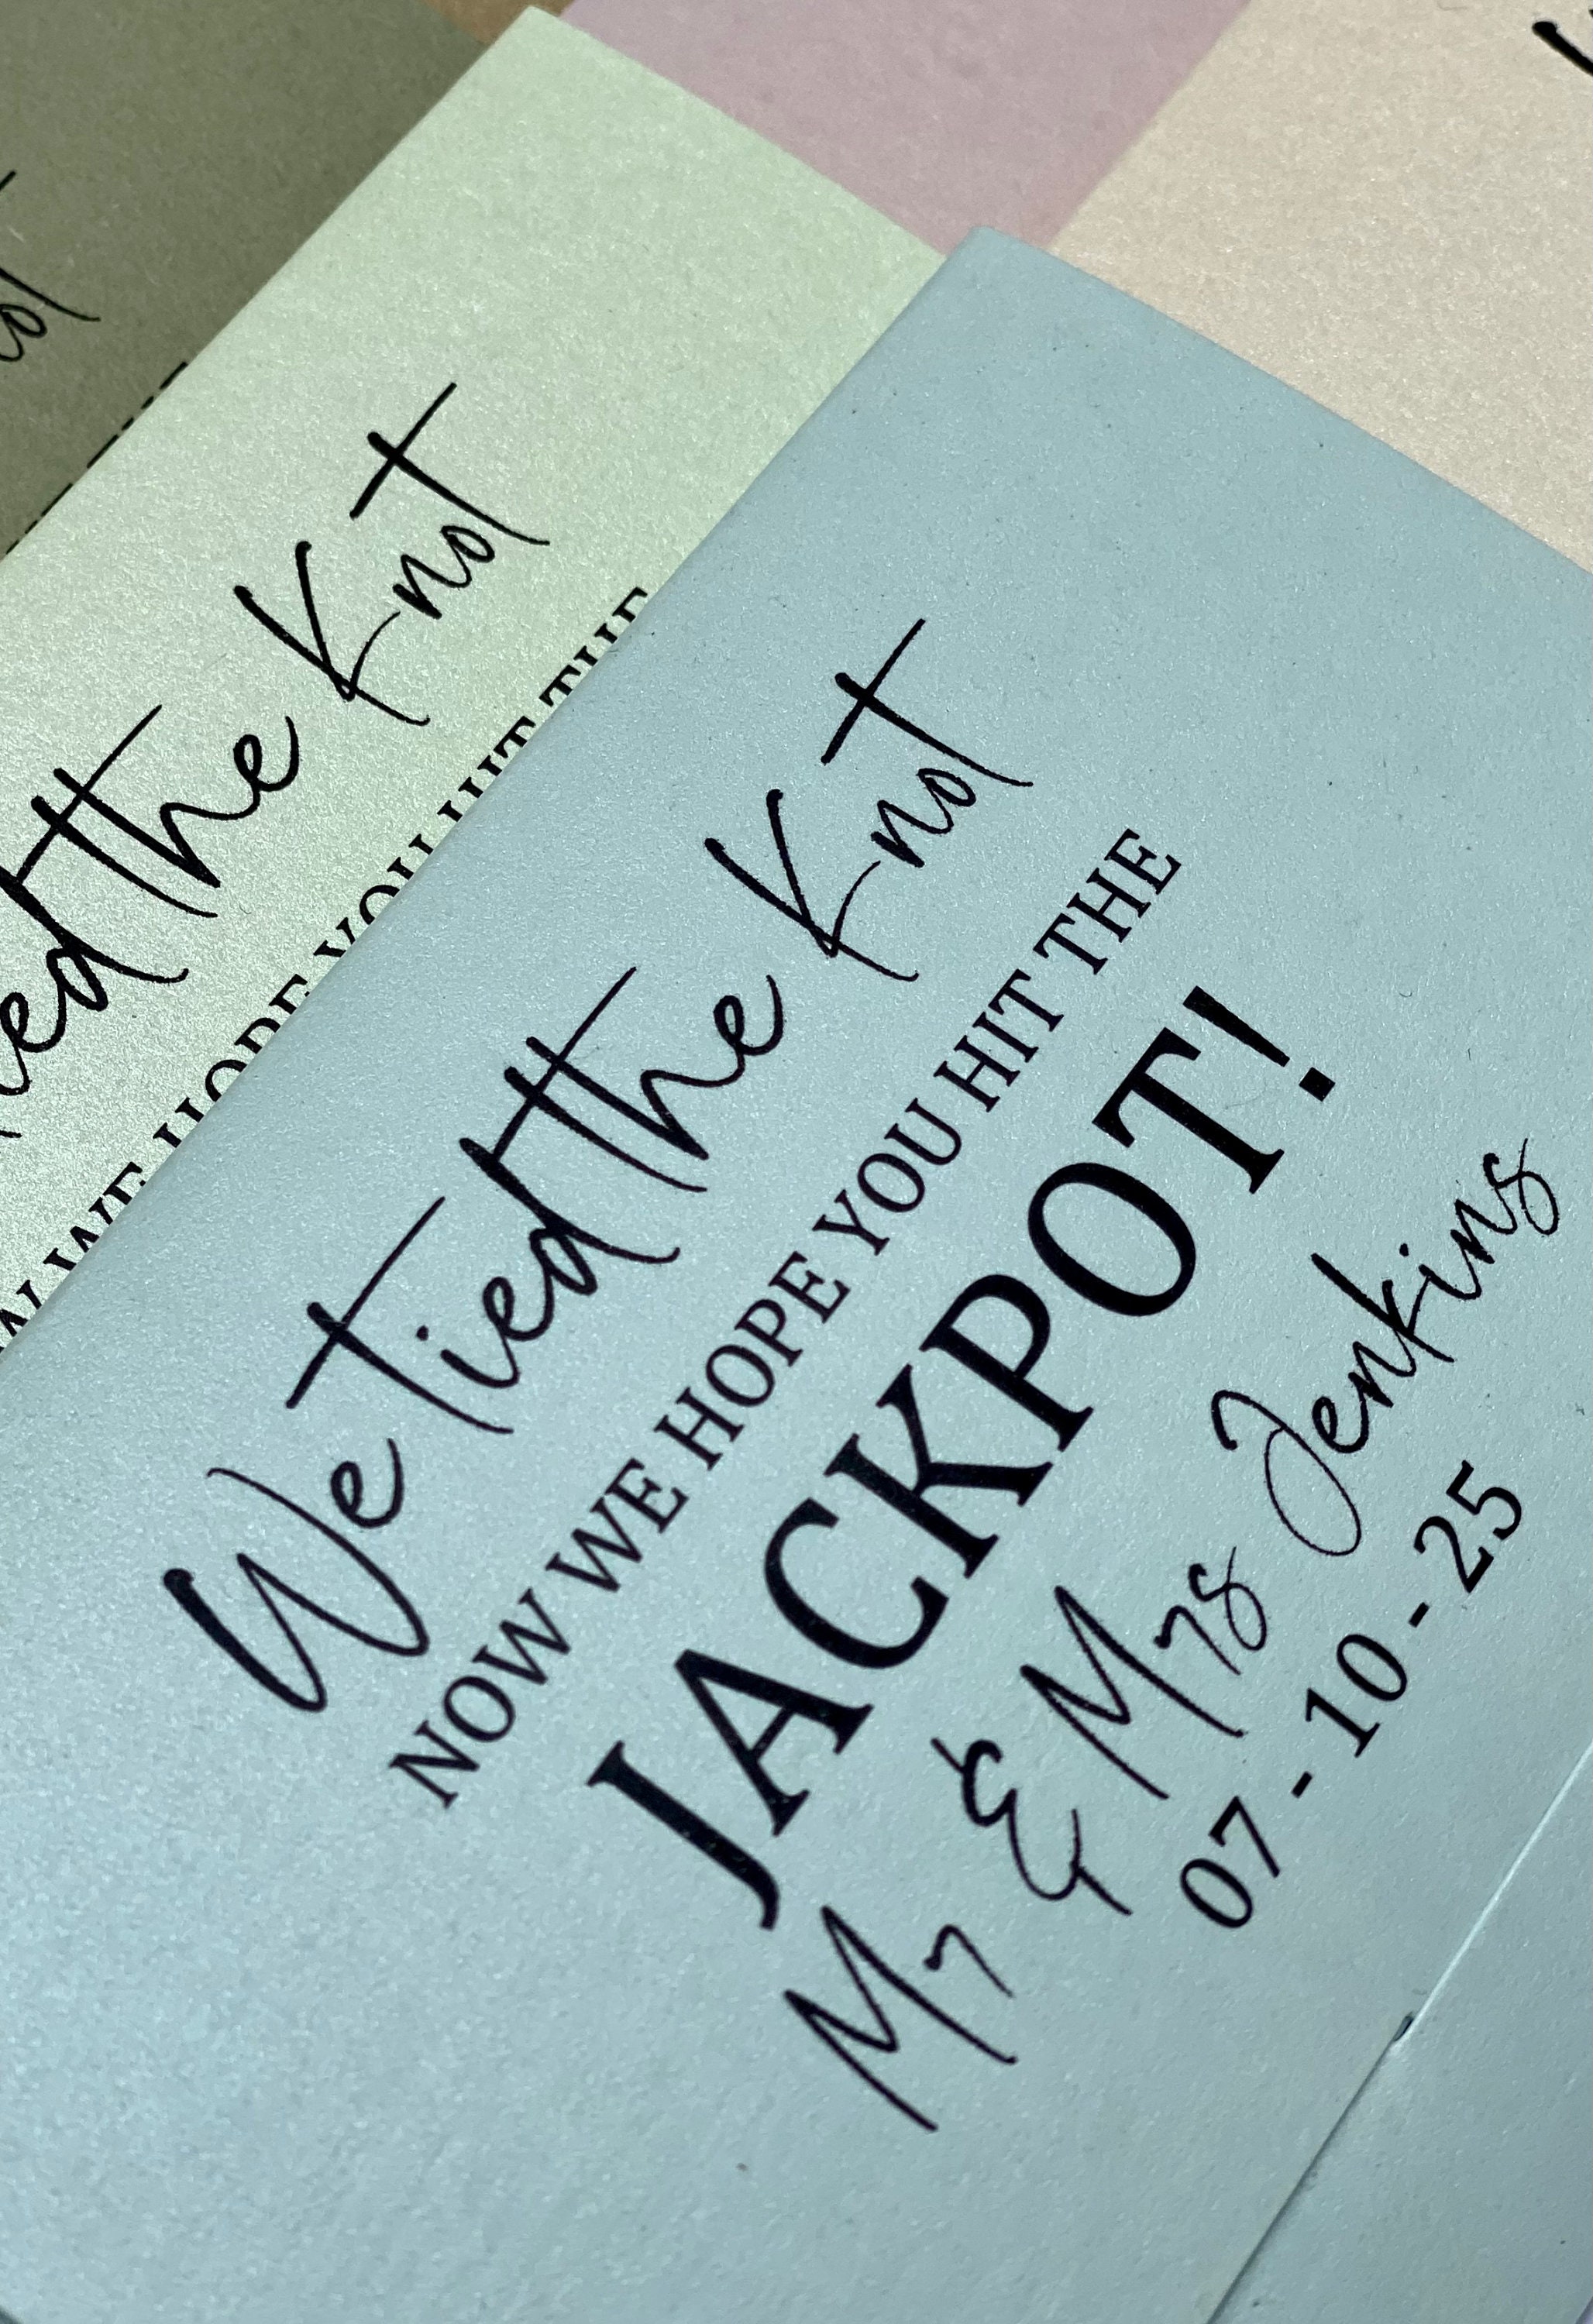 We Tied the Knot
NOW WE HOPE YOU HIT THE
JACKPOT!
Mr & Mrs Jenkins
07 - 10 - 25
the Knot
WE HOPE YOU HIT THE